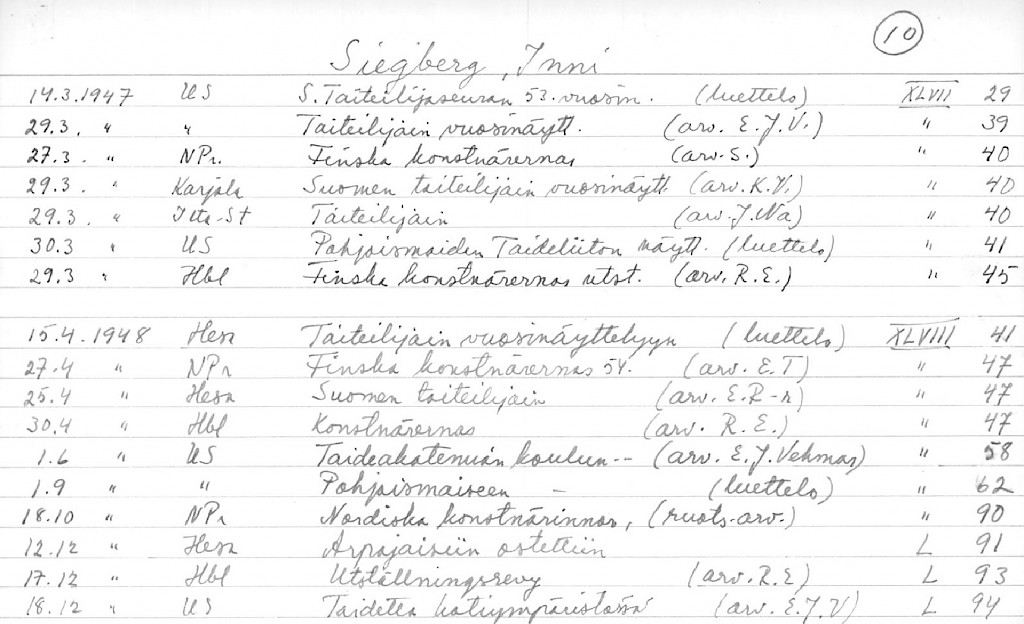 10
Siegberg, Inni
14.3.1947 US S. Taiteilijaseuran 53. vuosin. (luettelo) XLVII 29
29.3. " " Taiteilijain vuosinäytt. (arv. E.J.V.) " 39
27.3. " NPr. Finska konstnärernas (arv. S.) " 40
29.3. " Karjala Suomen taiteilijain vuosinäytt (arv. K.V.) " 40
29.3. " Ilta-St Taiteilijain (arv. J.Wa) " 40
30.3 " US Pohjoismaiden Taideliiton näytt. (luettelo) " 41
29.3 " Hbl Finska konstnärernas utst. (arv. R.E.) " 45
15.4.1948 Hesa Taiteilijain vuosinäyttelyyn (luettelo) XLVIII 41
27.4 " NPr Finska konstnärernas 54. (arv. E.T) " 47
25.4 " Hesa Suomen taiteilijain (arv. E.R-r) " 47
30.4 " Hbl Konstnärernas (arv. R.E.) " 47
1.6 " US Taideakatemian koulun-- (arv. E.J.Vehmas) " 58
1.9 " " Pohjoismaiseen - (luettelo) " 62
18.10 " NPr Nordiska konstnärinnor, (ruots. arv.) " 90
12.12 " Hesa Arpajaisiin ostettiin L 91
17.12 " Hbl Utställningsrevy (arv. R.E) L 93
18.12 " US Taidetta kotiympäristössä (arv. E.J.V) L 94